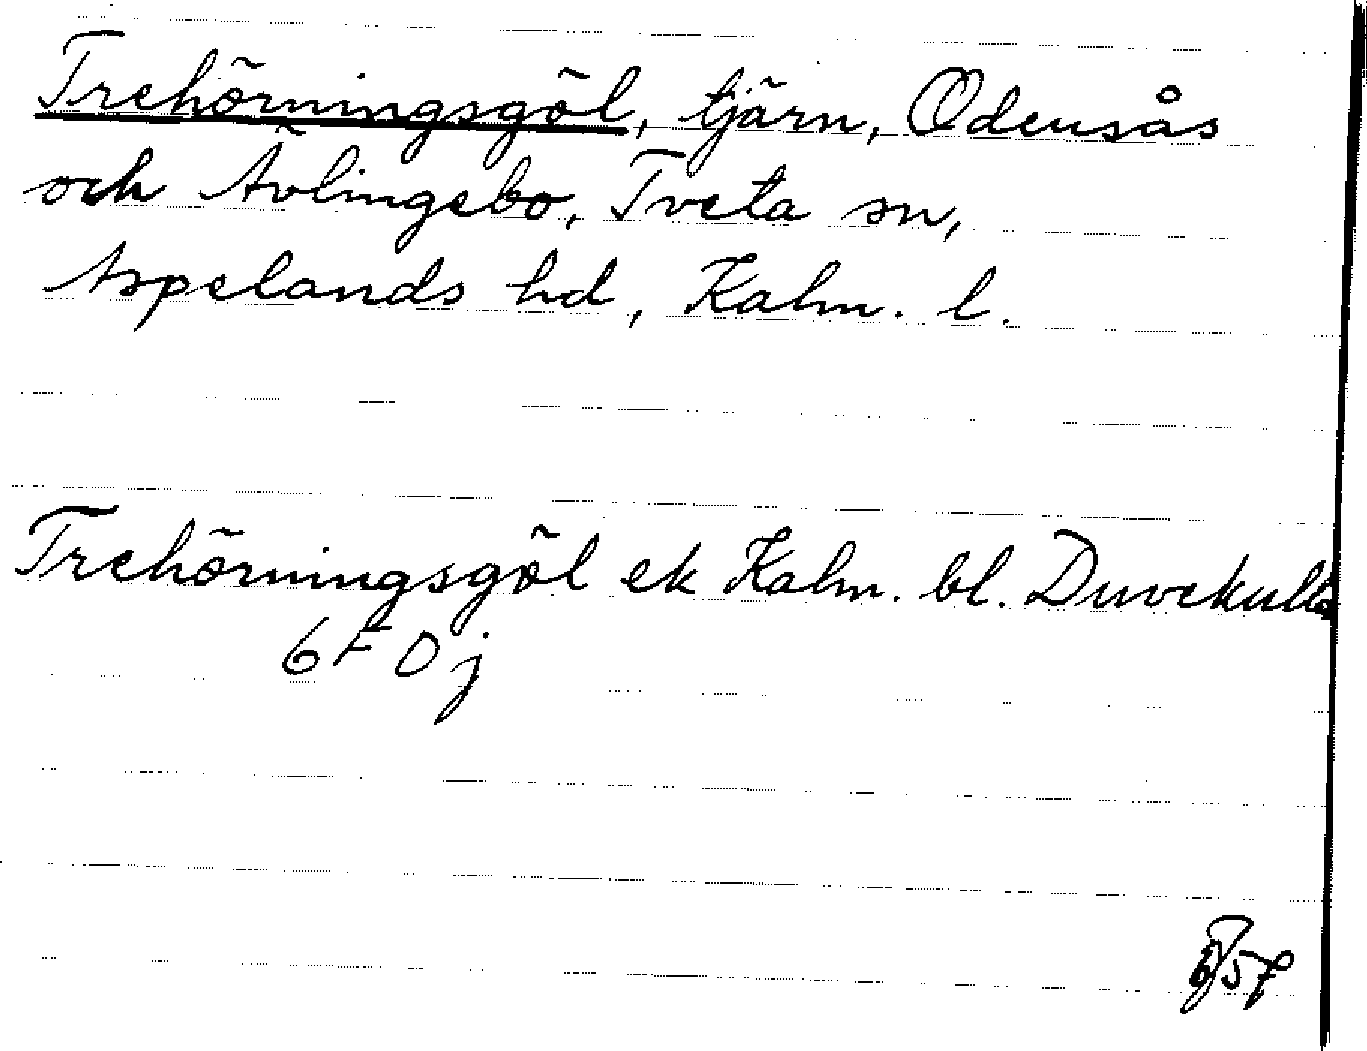 Trehörningsgöl, tjärn, Odensås
och Ävlingebo, Tveta sn,
Aspelands hd, Kalm. l.
Trehörningsgöl ek Kalm. bl. Duvekulla
6F 0j